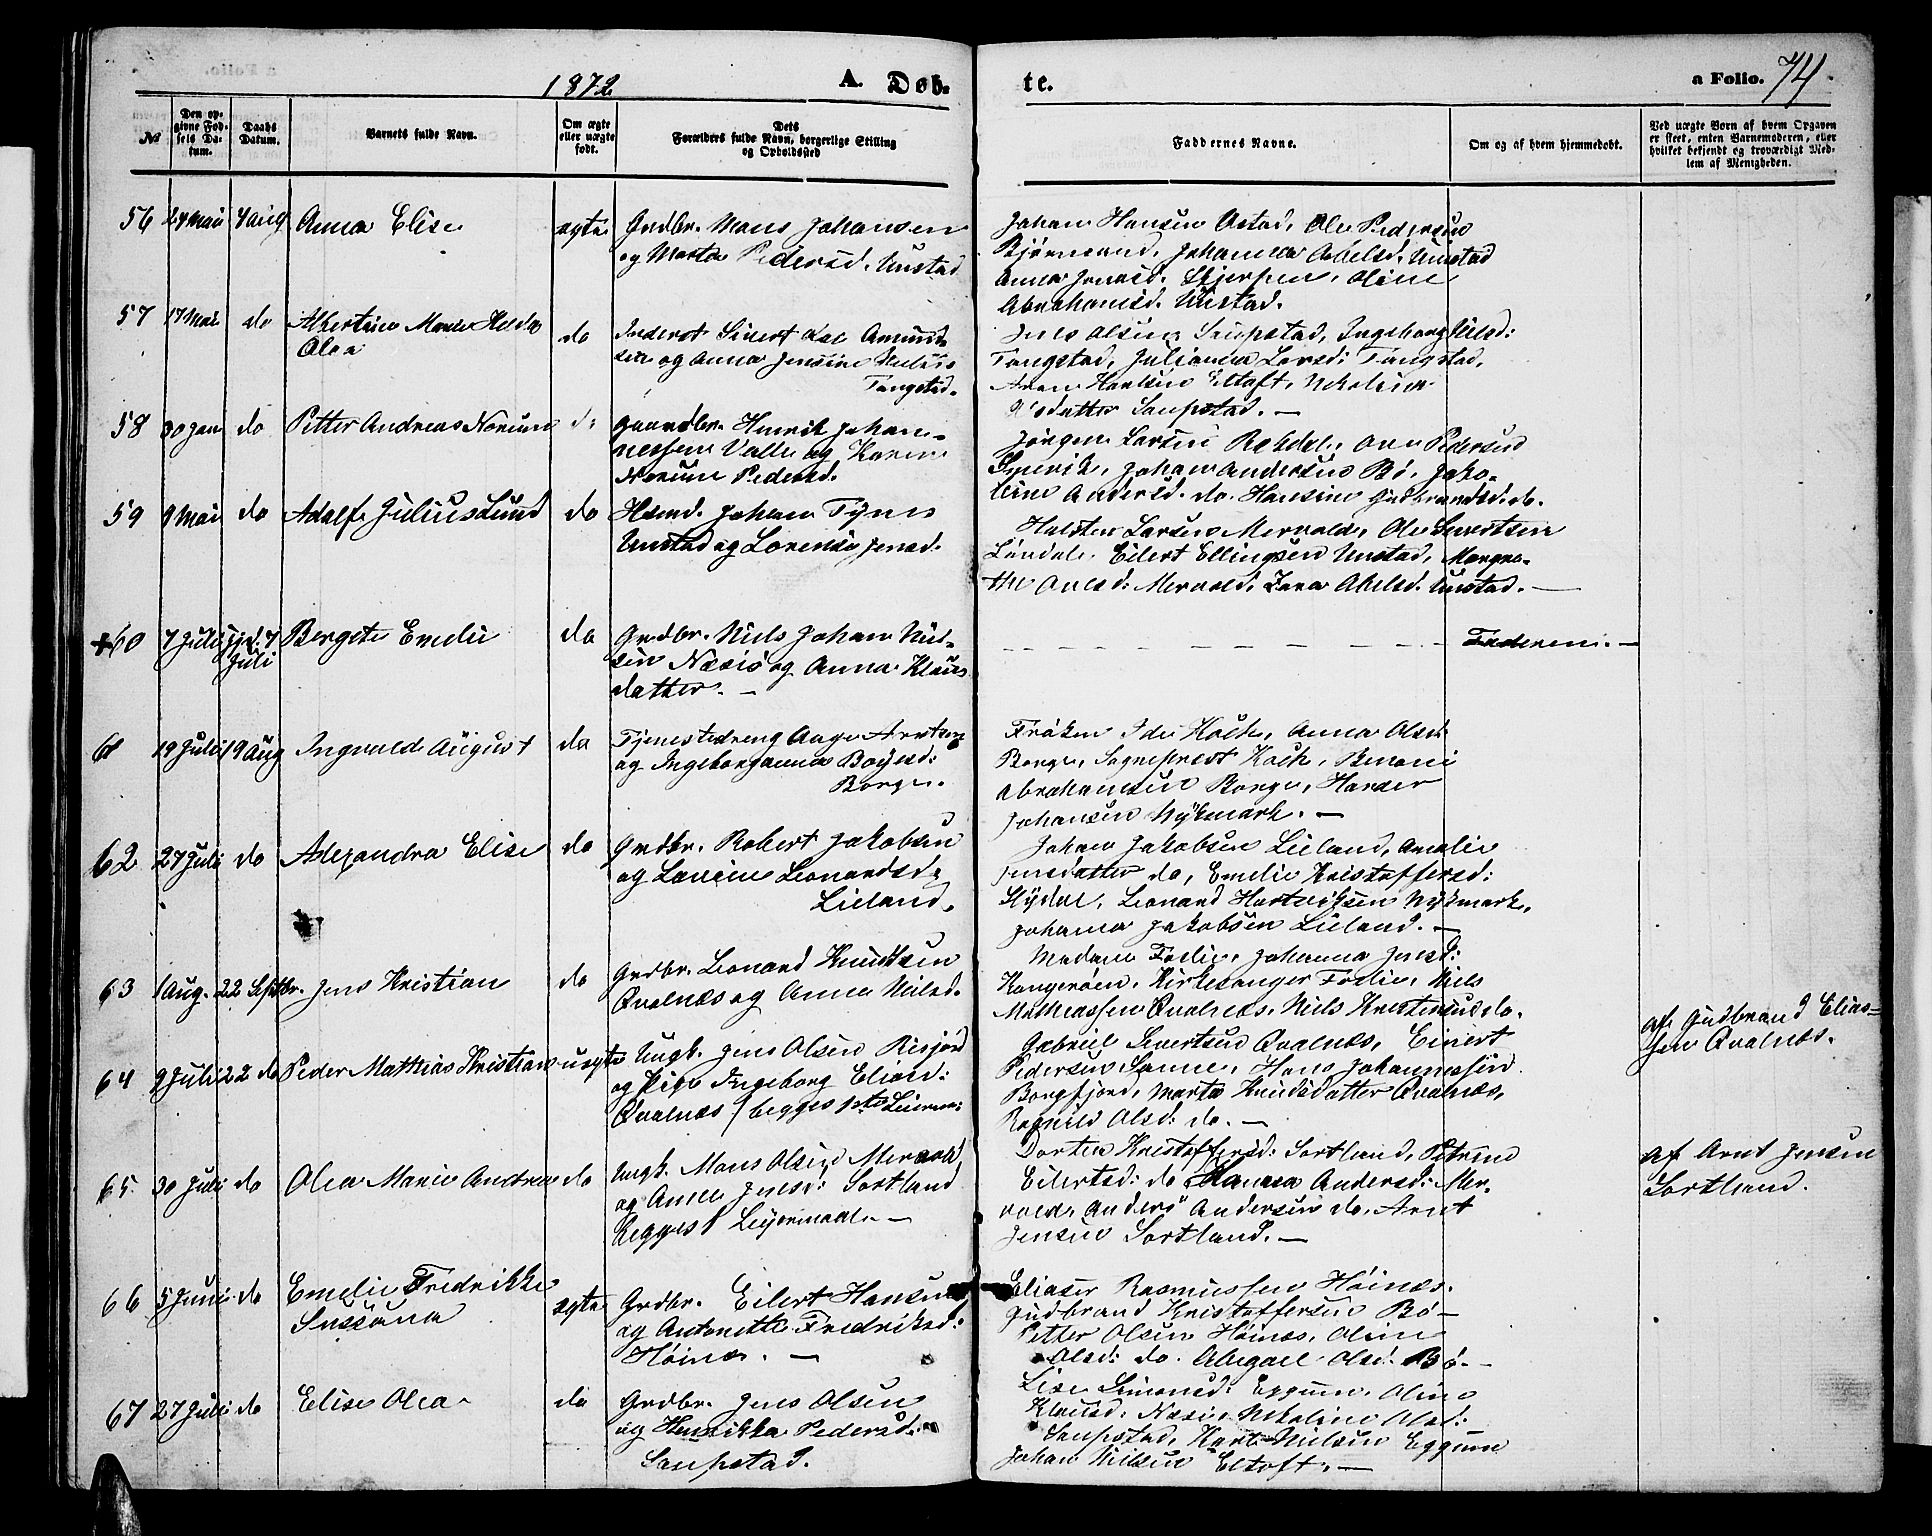 1872
A. Døb-
te.
a Folio. 74.
№
Den op-
givne Fød-
sels Da-
tum.
Daabs
Datum.
Barnets fulde Navn.
Om ægte
eller uægte
født.
Dets
Forældres fulde Navn, borgerlige Stilling
og Opholdssted
Faddernes Navne.
Om og af hvem hjemmedøbt.
Ved uægte Børn af hvem Opgaven
er skeet, enten Barnemoderen, eller
hvilket bekjendt og troværdigt Med-
lem af Menigheden.
56 24 Mai 4 Aug Anna Elise ægte Grdbr. Mons Johansen
og Marta Pedersd. Unstad
Johan Hansen Ostad, Ole Pedersen
Bjørnsand, Johanna Abelsd. Unstad
Anna Jensd. Skjerpen, Oline
Abrahamsd. Unstad.
57 17 Mai do Albertine Marie Helda
Olea
do Inderst Sivert Amund-
sen og Anna Jensine Nielsd
Tangstad.
Jens Olsen Saupstad, Ingeborg Nilsd:
Tangstad, Juliana Larsd: Tangstad,
Hansen Eltoft, Nikolina
datter Saupstad. —
58 30 Jan do Petter Andreas Norum do Gaardbr. Henrik Johan-
nessen Valle og Karen
Norum Pedersd.
Jørgen Larsen Pedersen
Johan Andersen Bø, Jako-
bine Andersd. do. Hansine Gudbrandsd. do.
59 9 Mai do Adolf Julius Lund do Hsmd. Johan Tynes
Unstad og Lorense Jensd.
Halsten Larsen Mervold, Ole Sivertsen
Eilert Ellingsen Unstad, Margre-
the Olesd: Mervold, Abelsd. Unstad. —
+60 7 Juli Hjd. 7
Juli
Bergete Emelie do Grdbr. Niels Johan Niel-
sen Næsiø og Anna Klaus
datter. —
Faderen. —
61 19 Juli 19 Aug Ingvald August do Tjenestedreng Aage Arntsen
og Ingeborganna Boyesd:
Borge.
Frøken Ida Koch, Anna Olsd:
Borge, Sogneprest Koch, Benoni
Abrahamsen Borge, Hanser
Johansen Nykmark. —
62 27 Juli do Alexandra Elise do Grdbr. Robert Jakobsen
og Lovine Leonardsd.
Lieland.
Johan Jakobsen Lieland, Amalie
Jensdatter do, Emelie Kristoffersd:
Leonard Hartviksen Nykmark,
Johanna Jakobsen Lieland. —
63 1 Aug. 22 Septbr. Jens Kristian do Grdbr. Leonard Knudsen
Qvalnæs og Anna Nielsd.
Madam Foslie, Johanna Jensd:
Kirkesanger Foslie, Niels
Mathiassen Qvalnæs, Niels Kristensen do.
64 9 Juli 22 do Peder Mathias Kristian uægte Ungk. Jens Olsen Risjord
og Pige Ingeborg Eliasd:
Qvalnæs (begges 1ste Leierm:
Gabriel Sivertsen Qvalnæs, Einert
Pedersen Sanne, Hans Johannesen
Borgfjord, Marta Knudsdatter Qvalnæs,
Ragnild Olsd: do. —
af Gudbrand Elias-
sen Qvalnæs.
65. 30 Juli do Olea Marie Andrea do Ungk. Mons Olsen Mervold
og Jensd: Sortland
begges 1 Leiermaal. —
Dortea Kristoffersd: Sortland, Petrine
Eilertsd: do Hanna Andersd: Mer-
vold, Anders Andersen do, Arnt
Jensen Sortland. —
af Arnt Jensen
Sortland.
66 5 Juni do Emelie Fredrikke
Sussana
ægte Grdbr. Eilert Hansen
og Antonette Fredriksd:
Høinæs. —
Eliaser Rasmussen Høinæs.
Gudbrand Kristoffersen Bø —
Petter Olsen Høinæs, Oline
Olsd: do. Abigael Olsd. Bø. —
67 27 Juli do Elise Olea do Grdbr. Jens Olsen
og Henrikka Pedersd.
Saupstad.
Lise Simonsd: Eggum, Oline
Klausd. Næsiø, Nikoline Olsd:
Saupstad, Nielsen Eggum
Johan Nielsen Eltoft. —